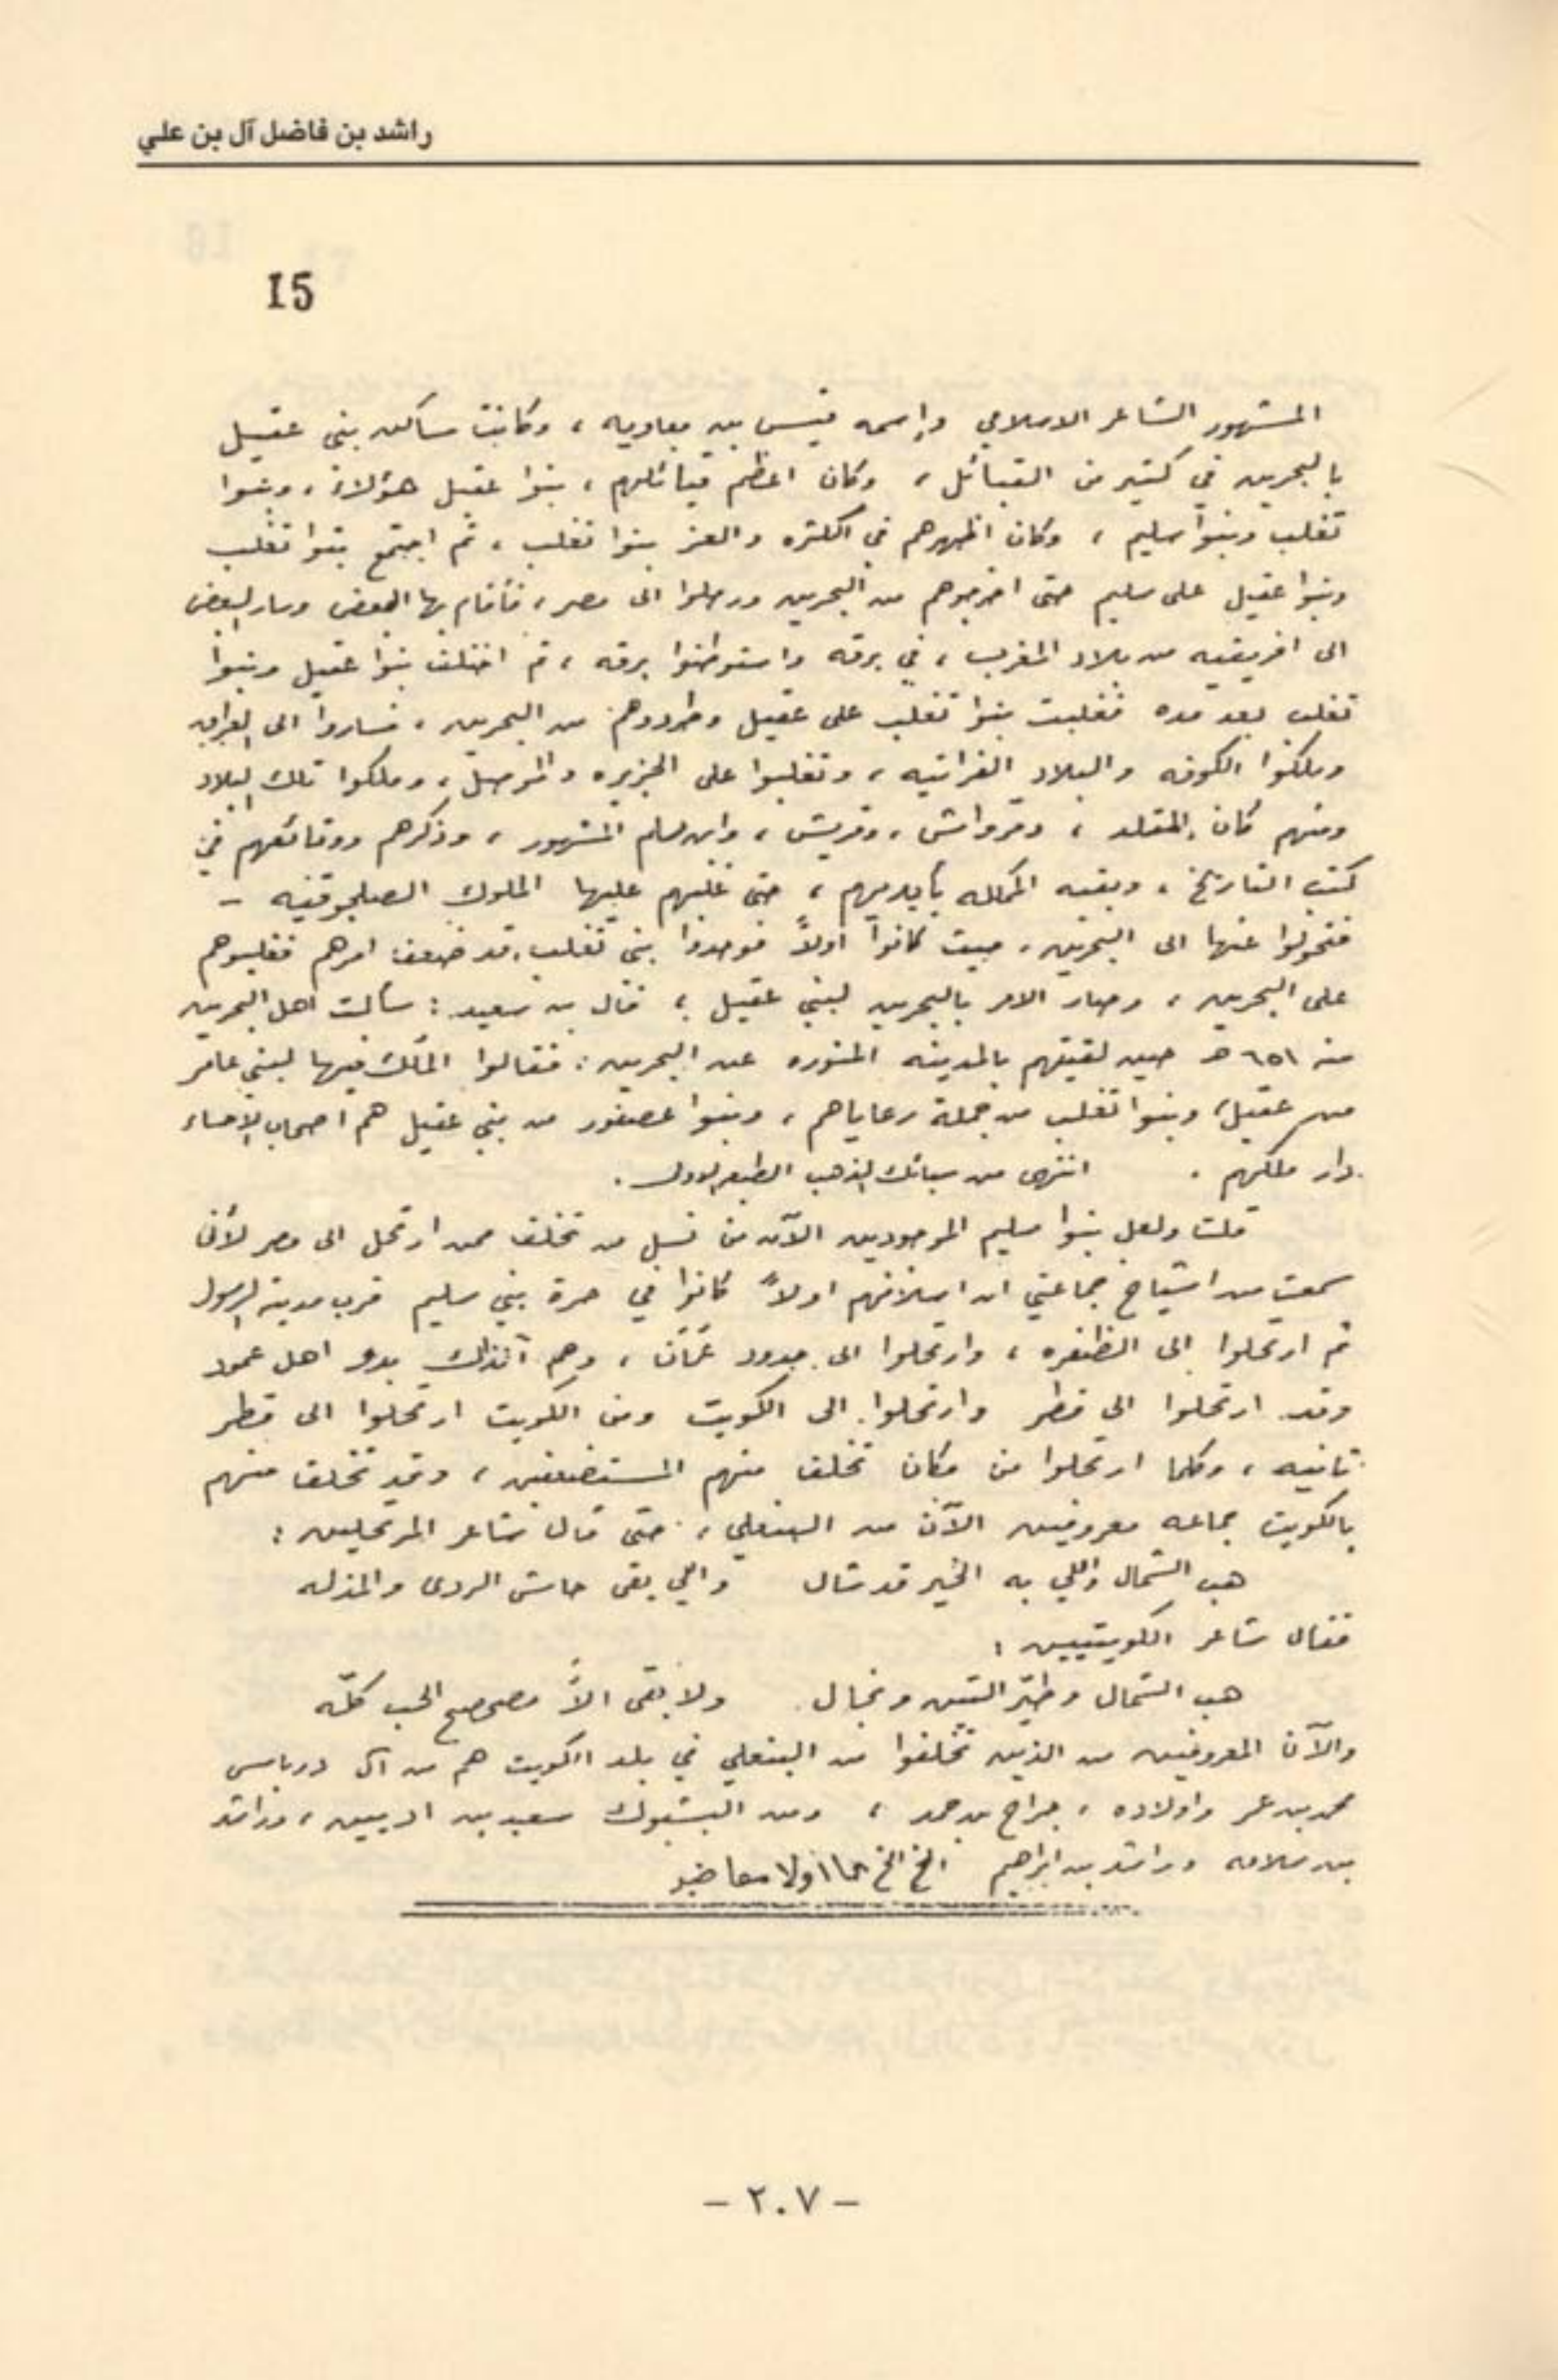 راشد بن فاضل آل بن علي
15
المشهور الشاعر الاسلامي وإسمه قيس بن معاويه ، وكانت مساكن بني عقيل
بالبحرين في كثير من القبائل ، وكان اعظم قبائلهم ، بنوا عقيل هؤلاء ، وبنوا
تغلب وبنوا سليم ، وكان اظهرهم في الكثره والعز بنوا تغلب ، ثم اجتمع بنوا تغلب
وبنوا عقيل على سليم حتى اخرجوهم من البحرين ورحلوا الى مصر ، فأقام بها البعض وسار البعض
الى افريقيه من بلاد المغرب ، في برقه واستوطنوا برقه ، ثم اختلف بنوا عقيل وبنوا
تغلب بعد مده فغلبت بنوا تغلب على عقيل وطردوهم من البحرين ، فساروا الى العراق
وملكوا الكوفه والبلاد الفراتيه ، وتغلبوا على الجزيره والموصل ، وملكوا تلك البلاد
ومنهم كان المقلد ، وقرواش ، وقريش ، وابن مسلم المشهور ، وذكرهم ووقائعهم في
كتب التاريخ ، وبقيه المملكه بأيديهم ، حتى غلبهم عليها الملوك الصلجوقيه -
فتحولوا عنها الى البحرين ، حيث كانوا اولاً فوجدوا بني تغلب قد ضعف امرهم فغلبوهم
على البحرين ، وصار الامر بالبحرين لبني عقيل ، قال بن سعيد : سألت اهل البحرين
سنه ٦٥١ هـ حين لقيتهم بالمدينه المنوره عن البحرين : فقالوا الملك فيها لبني عامر
من عقيل ، وبنوا تغلب من جملة رعاياهم ، وبنوا عصفور من بني عقيل هم اصحاب الاحساء
دار ملكهم . انتهى من سبائك الذهب الطبع الاول .
قلت ولعل بنوا سليم الموجودين الآن من نسل من تخلف ممن ارتحل الى مصر لأني
سمعت من اشياخ جماعتي ان اسلافهم اولاً كانوا في حرة بني سليم قرب مدينة الرسول
ثم ارتحلوا الى الظفره ، وارتحلوا الى حدود عُمَان ، وهم آنذاك بدو اهل عمود
وقد ارتحلوا الى قطر وارتحلوا الى الكويت ومن الكويت ارتحلوا الى قطر
ثانيه ، وكلما ارتحلوا من مكان تخلف منهم المستضعفين ، وقد تخلف منهم
بالكويت جماعه معروفين الآن من البنعلي ، حتى قال شاعر المرتحلين :
هب الشمال واللي به الخير قد شال واللي بقى حاش الردى والمذله
فقال شاعر الكويتيين :
هب الشمال وطيّر التبن ونجال ولا بقى الاّ مصحصح الحب كلّه
والآن المعروفين من الذين تخلفوا من البنعلي في بلد الكويت هم من آل درباس
محمد بن عمر واولاده ، جراح بن حمد ، ومن البشبوك سعيد بن ، وراشد
بن سلامه وراشد بن ابراهيم الخ الخ
- ٢٠٧ -